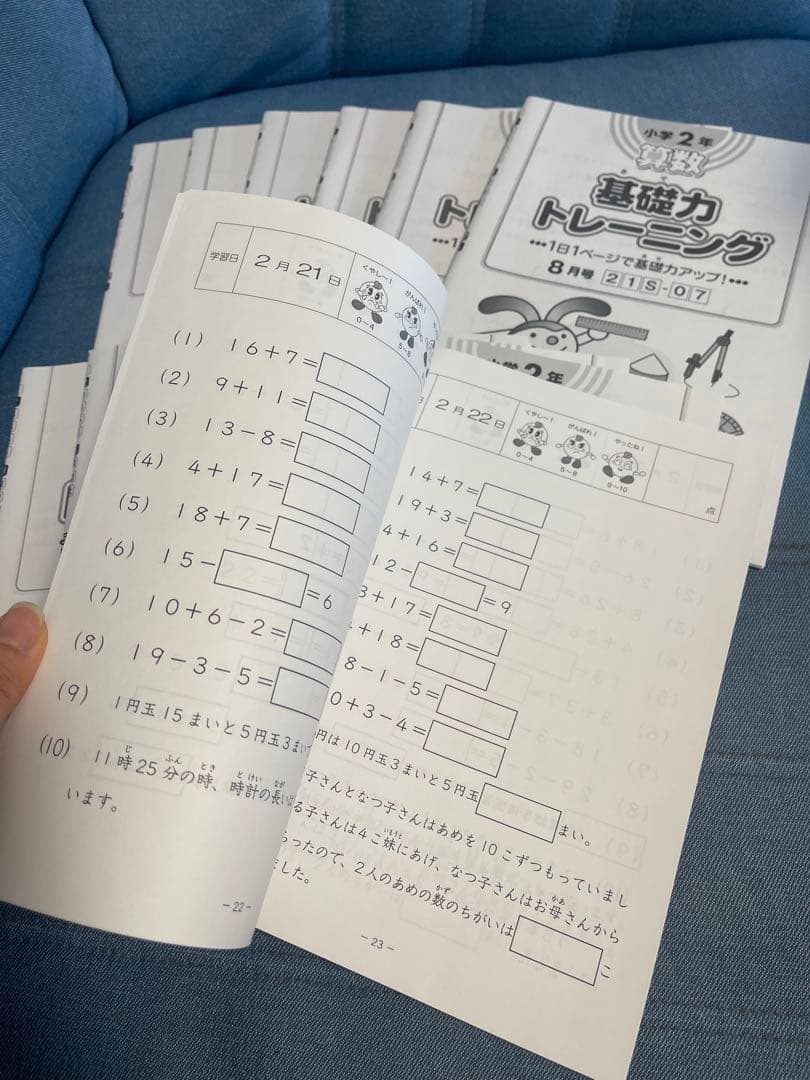 小学2年
算数
基礎力
トレーニング
•••1日1ページで基礎力アップ!•••
8月号 21S-07
学習日 2月21日
くやし〜! がんばれ!
0〜4 5〜8
(1) 16+7=
(2) 9+11=
(3) 13-8=
(4) 4+17=
(5) 18+7=
(6) 15-□=6
(7) 10+6-2=
(8) 19-3-5=
(9) 1円玉15まいと5円玉3まい
(10) 11時25分の時、時計の長い
います。
-22-
小学2年
日 2月22日
くやし〜! がんばれ! やったね!
0〜4 5〜8 9〜10
点
14+7=
19+3=
4+16=
12-□=9
3+17=
+18=
8-1-5=
0+3-4=
円は10円玉3まいと5円玉□まい。
子さんとなつ子さんはあめを10こずつもっていまし
る子さんは4こ妹にあげ、なつ子さんはお母さんから
らったので、2人のあめの数のちがいは□こ
ました。
-23-